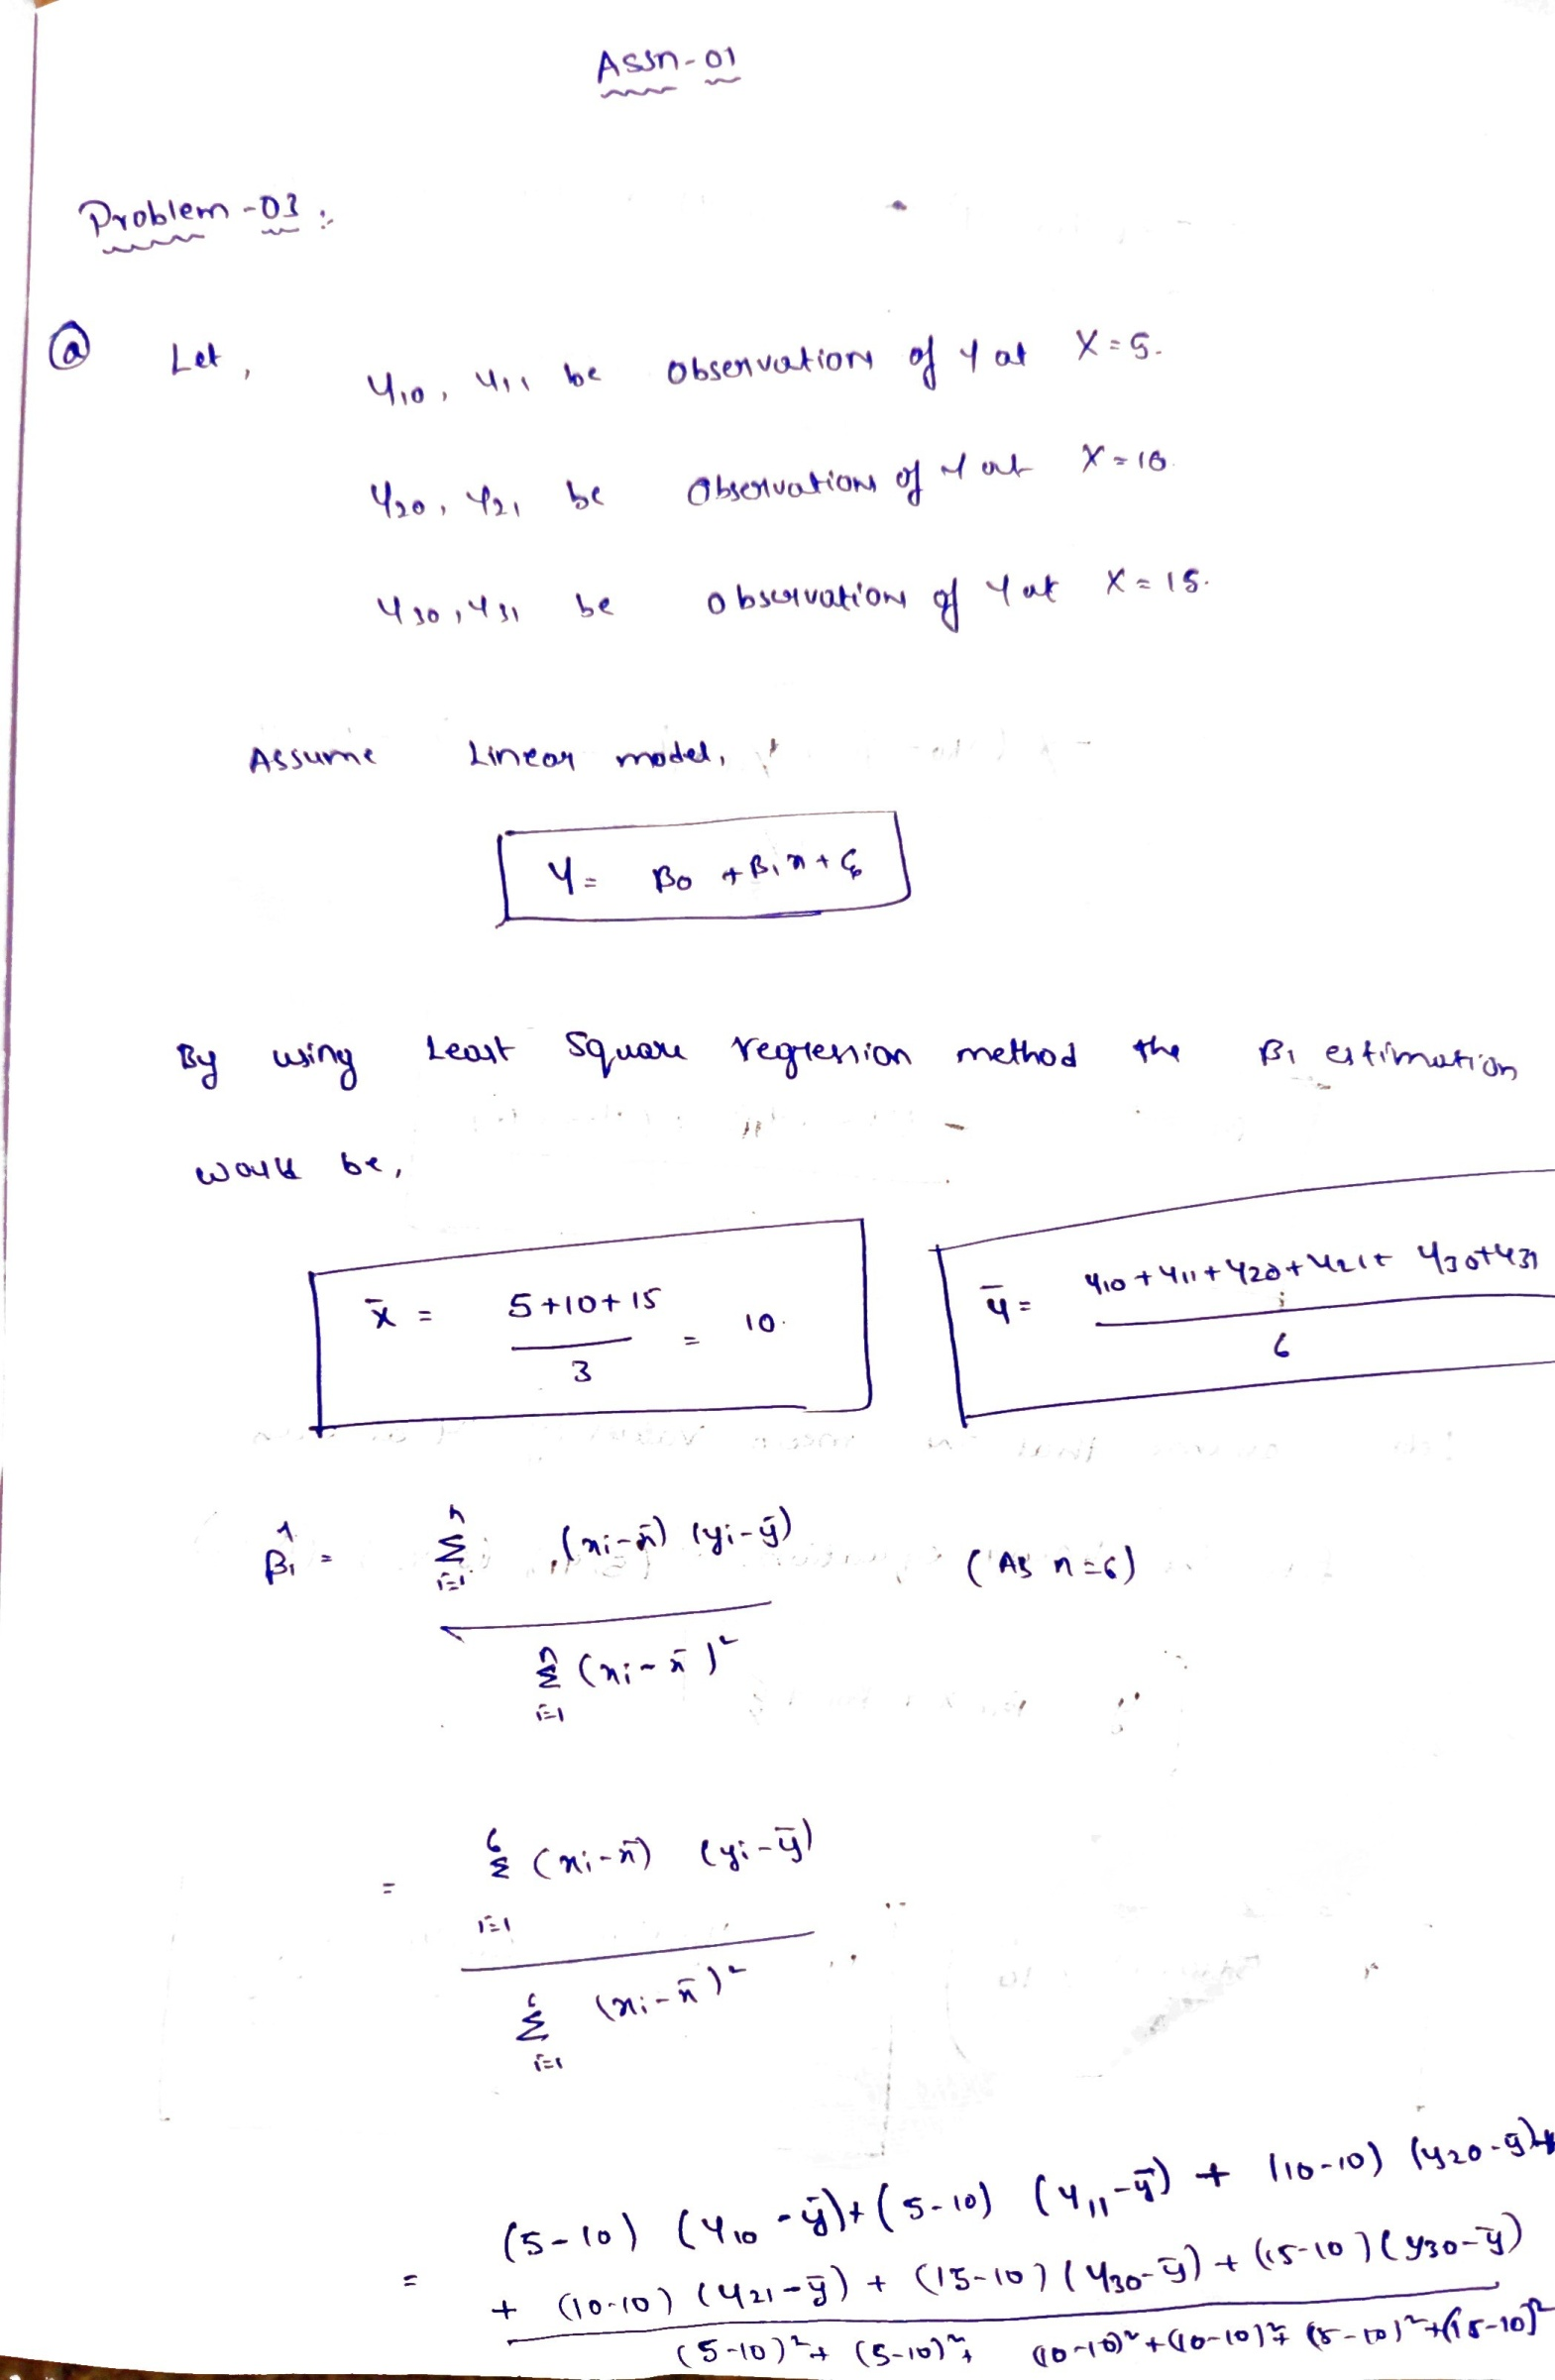 Assn-01
Problem-03 :
(a) Let, y10, y11 be observations of y at X=5.
y20, y21 be observations of y at X=10
y30, y31 be observations of y at X=15.
Assume Linear model,
y = β0 + β1x + ε
By using Least Square regression method the β1 estimation
would be,
x̄ = (5+10+15)/3 = 10.
ȳ = (y10 + y11 + y20 + y21 + y30 + y31)/6
β̂1 = Σ_{i=1}^{n} (xi-x̄) (yi-ȳ) (As n=6)
Σ_{i=1}^{n} (xi-x̄)²
= Σ_{i=1}^{6} (xi-x̄) (yi-ȳ)
Σ_{i=1}^{6} (xi-x̄)²
= (5-10) (y10-ȳ) + (5-10) (y11-ȳ) + (10-10) (y20-ȳ)+
+ (10-10) (y21-ȳ) + (15-10) (y30-ȳ) + (15-10) (y30-ȳ)
(5-10)² + (5-10)² + (10-10)² + (10-10)² + (5-10)² + (15-10)²